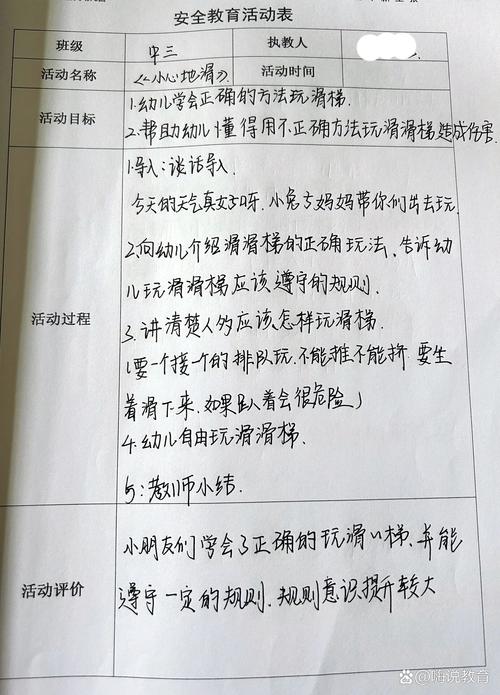 安全教育活动表
班级 中三 执教人
活动名称 《小心地滑》 活动时间
活动目标
1.幼儿学会正确的方法玩滑梯.
2.帮助幼儿懂得用不正确方法玩滑滑梯造成伤害
活动过程
1.导入:谈话导入
今天的天气真好呀.小兔子妈妈带你们出去玩.
2.向幼儿介绍滑滑梯的正确玩法,告诉幼
儿玩滑滑梯应该遵守的规则.
3.讲清楚人多应该怎样玩滑梯.
(要一个接一个的排队玩.不能推不能挤.要坐
着滑下来.如果趴着会很危险)
4.幼儿自由玩滑滑梯.
5:教师小结.
活动评价
小朋友们学会了正确的玩滑〃梯.并能
遵守一定的规则.规则意识提升较大
@嗨说教育